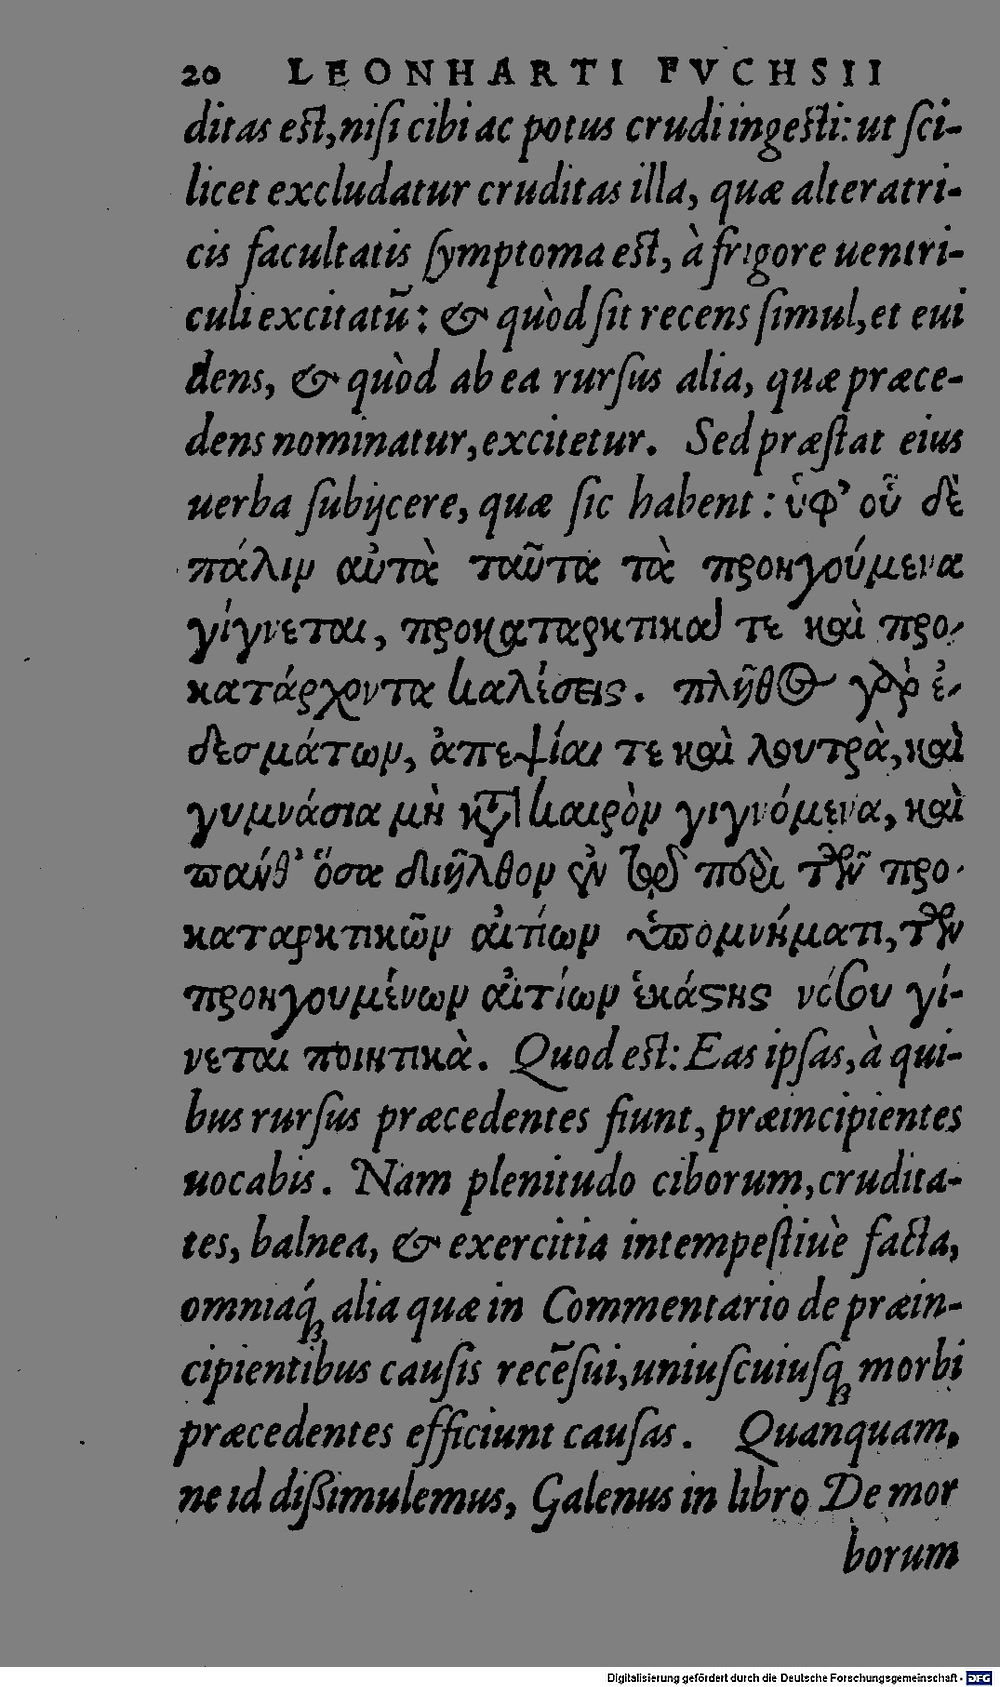 20 LEONHARTI FVCHSII
ditas est, nisi cibi ac potus crudi ingesti: ut sci-
licet excludatur cruditas illa, quæ alteratri-
cis facultatis symptoma est, à frigore uentri-
culi excitatũ: & quòd sit recens simul, et eui
dens, & quòd ab ea rursus alia, quæ præce-
dens nominatur, excitetur. Sed præstat eius
uerba subijcere, quæ sic habent: ὑφ’ οὗ δὲ
πάλιν αὐτὰ ταῦτα τὰ προηγούμενα
γίγνεται, προκαταρκτικὰ τε καὶ προ-
κατάρχοντα καλέσεις. πλῆθος γὰρ ἐ-
δεσμάτων, ἀπεψίαι τε καὶ λουτρὰ, καὶ
γυμνάσια μὴ κτ̀ καιρὸν γιγνόμενα, καὶ
πάνθ’ ὅσα διῆλθον ἐν τῷ περὶ τῶν προ-
καταρκτικῶν αἰτίων ὑπομνήματι, τῶν
προηγουμένων αἰτίων ἑκάστης νόσου γί-
νεται ποιητικὰ. Quod est: Eas ipsas, à qui-
bus rursus præcedentes fiunt, præincipientes
uocabis. Nam plenitudo ciborum, crudita-
tes, balnea, & exercitia intempestiuè facta,
omniaq́; alia quæ in Commentario de præin-
cipientibus causis recẽsui, uniuscuiusq; morbi
præcedentes efficiunt causas. Quanquam,
ne id dissimulemus, Galenus in libro De mor
borum
Digitalisierung gefördert durch die Deutsche Forschungsgemeinschaft - DFG